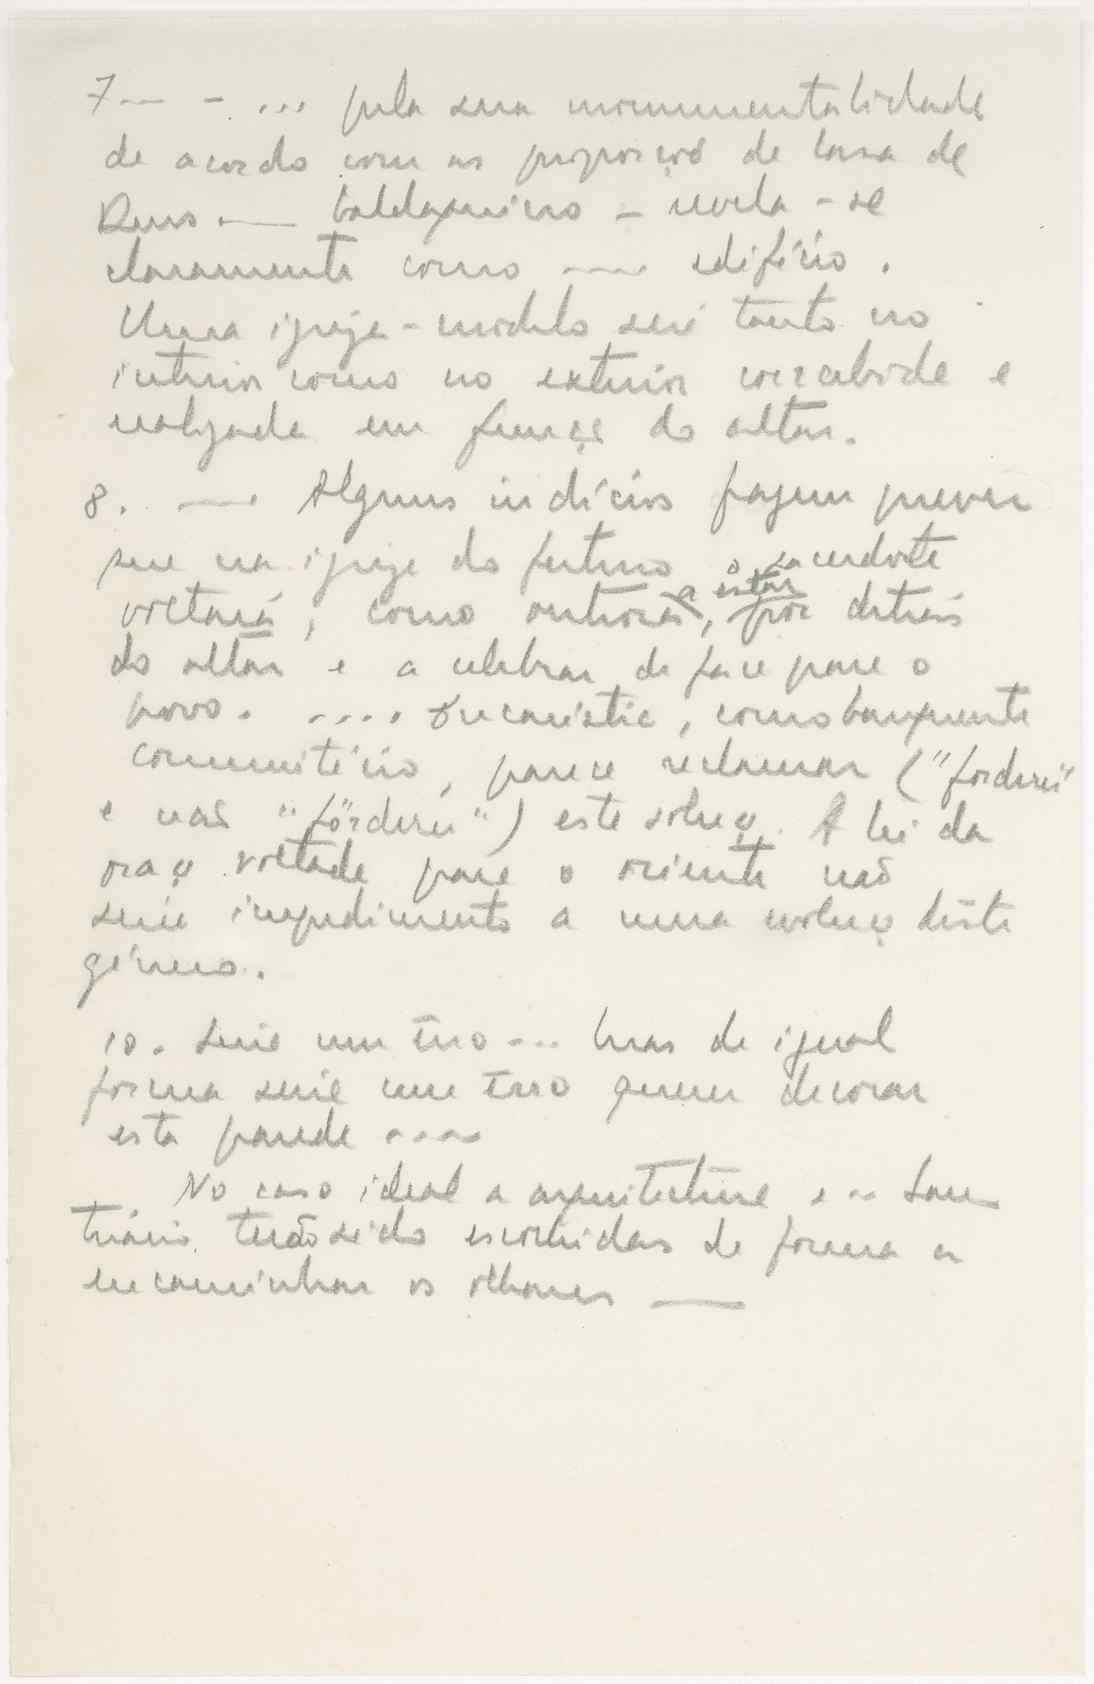 7 — - ... pela sua monumentalidade
de acordo com as proporçoẽ de Casa de
Deus — baldaquino - revela-se
claramente como —— edifício.
Uma igreja-modelo será tanto no
interior como no exterior concebida e
realizada em funçã do altar.
8. —. Alguns indícios fazem prever
que na igreja do futuro o sacerdote
voltará, como outrora, a estar por detrás
do altar e a celebrar de face para o
povo. .... Eucaristia, como banquete
comunitário, parece reclamar ("fordern"
e não "fördern") esta soluçã. A lei da
oraçã voltada para o oriente não
seria impedimento a uma evoluçã dêste
género.
10. Seria um êrro ... Mas de igual
forma seria um êrro querer decorar
esta parede ....
No caso ideal a arquitectura e .. San
tuário terão sido escolhidas de forma a
encaminhar os olhares ——